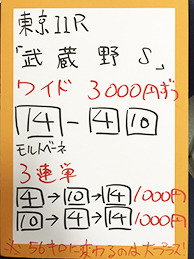 東京11R
「武蔵野S」
ワイド 3000円ずつ
14 - 4 10
モルトベーネ
3連単
4→10→14 1000円
10→4→14 1000円
※56キロに変わるのは大プラス!